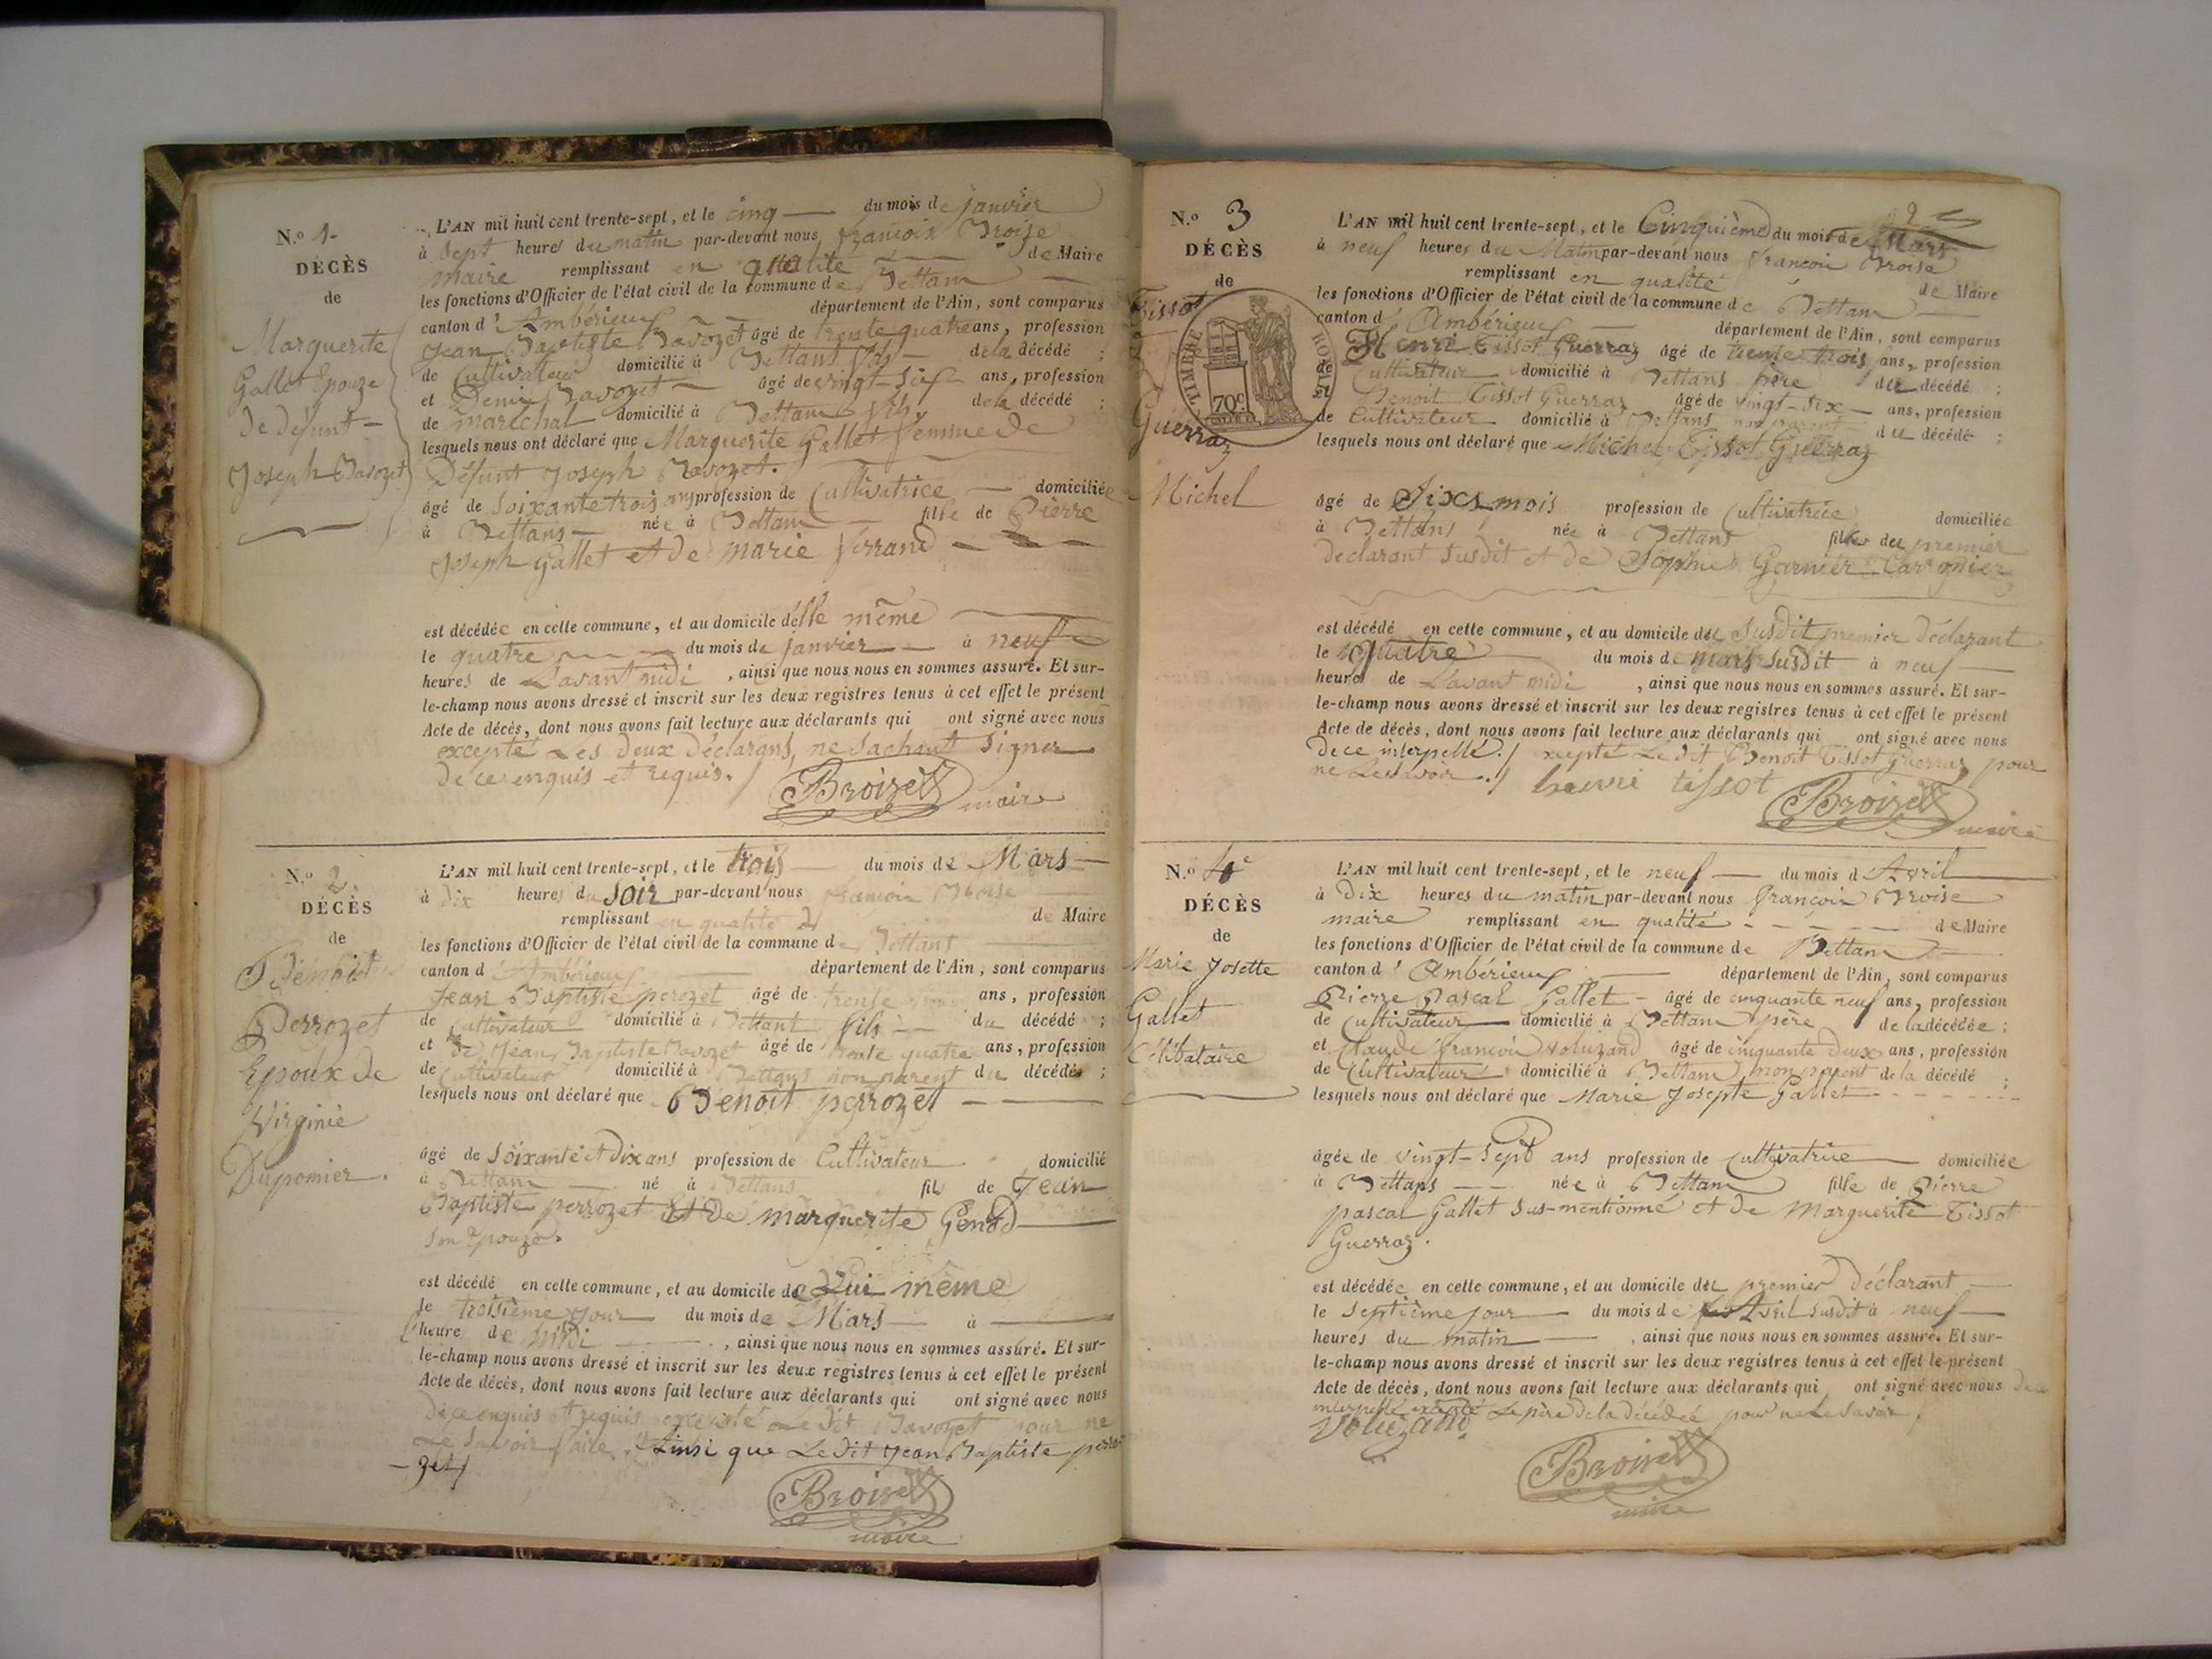 N.o 1.
DÉCÈS
de
Marguerite
Gallet Epouze
de défunt
Joseph Ravozet
L'AN mil huit cent trente-sept, et le cinq du mois de janvier
à Sept heures du matin par-devant nous françois Broise
maire remplissant en qualité de Maire
les fonctions d'Officier de l'état civil de la commune de Bettans
canton d'Ambérieux département de l'Ain, sont comparus
Jean Baptiste Ravozet âgé de trente quatre ans, profession
de Cultivateur domicilié à Bettans fils de la décédé ;
et Denis Ravozet âgé de vingt-six ans, profession
de maréchal domicilié à Bettans fils de la décédé ;
lesquels nous ont déclaré que Marguerite Gallet femme de
Défunt Joseph Ravozet.
âgé de Soixante trois ans profession de Cultivatrice domiciliée
à Bettans née à Bettans fille de Pierre
Joseph Gallet et de marie ferrand
est décédée en cette commune, et au domicile d'elle même
le quatre du mois de janvier à neuf
heures de L'avant midi, ainsi que nous nous en sommes assuré. Et sur-
le-champ nous avons dressé et inscrit sur les deux registres tenus à cet effet le présent
Acte de décès, dont nous avons fait lecture aux déclarants qui ont signé avec nous
excepté Les deux déclarans, ne Sachant Signer
de ce enquis et requis.
Broize maire
N.o 2
DÉCÈS
de
Benoit
Perrozet
Epoux de
Virginie
Dupomier.
L'AN mil huit cent trente-sept, et le trois du mois de Mars
à dix heures du soir par-devant nous francois Broise
remplissant en qualité de Maire
les fonctions d'Officier de l'état civil de la commune de Bettans
canton d'Ambérieux département de l'Ain, sont comparus
Jean Baptiste perozet âgé de trente ans, profession
de Cultivateur domicilié à Bettant fils du décédé ;
et de Jean Baptiste Ravozet âgé de trente quatre ans, profession
de Cultivateur domicilié à Bettans non parent du décédé ;
lesquels nous ont déclaré que Benoit perrozet
âgé de Soixante et Dix ans profession de Cultivateur domicilié
à Bettans né à Bettans fils de Jean
Baptiste perrozet Et de marguerite Genod
Son Epouze.
est décédé en cette commune, et au domicile de Lui même
le troisième jour du mois de Mars à
heure de Midi, ainsi que nous nous en sommes assuré. Et sur-
le-champ nous avons dressé et inscrit sur les deux registres tenus à cet effet le présent
Acte de décès, dont nous avons fait lecture aux déclarants qui ont signé avec nous
de ce enquis et requis excepté Le dit Ravozet pour ne
Le Savoir faire. Ainsi que Le dit Jean Baptiste perro
-zet
Broize
maire
2
N.o 3
DÉCÈS
de
Tissot
Guerraz
Michel
TIMBRE ROYAL
70c
L'AN mil huit cent trente-sept, et le Cinquième du mois de Mars
à neuf heures du Matin par-devant nous francois Broise
remplissant en qualité de Maire
les fonctions d'Officier de l'état civil de la commune de Bettans
canton d'Ambérieux département de l'Ain, sont comparus
Henri Tissot Guerraz âgé de trente trois ans, profession
de Cultivateur domicilié à Bettans père du décédé ;
et Benoit Tissot Guerraz âgé de vingt-six ans, profession
de Cultivateur domicilié à Bettans non parent du décédé ;
lesquels nous ont déclaré que Michel Tissot Guerraz
âgé de Six mois profession de Cultivatrice domiciliée
à Bettans née à Bettans fils du premier
declarant susdit et de Sophie Garnier
est décédé en cette commune, et au domicile du Susdit premier déclarant
le Quatre du mois de mars susdit à neuf
heures de L'avant midi, ainsi que nous nous en sommes assuré. Et sur-
le-champ nous avons dressé et inscrit sur les deux registres tenus à cet effet le présent
Acte de décès, dont nous avons fait lecture aux déclarants qui ont signé avec nous
de ce interpellé. / excepté Le dit Benoit Tissot Guerraz pour
ne Le savoir. / henri tissot
Broize
maire
N.o 4e
DÉCÈS
de
Marie Josette
Gallet
Célibataire
L'AN mil huit cent trente-sept, et le neuf du mois d'Avril
à Dix heures du matin par-devant nous françois Broise
maire remplissant en qualité de Maire
les fonctions d'Officier de l'état civil de la commune de Bettans
canton d'Ambérieux département de l'Ain, sont comparus
Pierre Pascal Gallet âgé de cinquante neuf ans, profession
de Cultivateur domicilié à Bettans père de la décédée ;
et Claude françois voluzand âgé de cinquante deux ans, profession
de Cultivateur domicilié à Bettans non parent de la décédé ;
lesquels nous ont déclaré que Marie Josepte Gallet
âgée de vingt-Sept ans profession de cultivatrice domiciliée
à Bettans née à Bettans fille de Pierre
pascal Gallet sus-mentionné et de Marguerite Tissot
Guerraz.
est décédée en cette commune, et au domicile du premier déclarant
le Septième jour du mois de Avril susdit à neuf
heures du matin, ainsi que nous nous en sommes assuré. Et sur-
le-champ nous avons dressé et inscrit sur les deux registres tenus à cet effet le présent
Acte de décès, dont nous avons fait lecture aux déclarants qui ont signé avec nous de ce
interpellé excepté Le père de la décédée pour ne Le savoir
Voluzand
Broize
maire